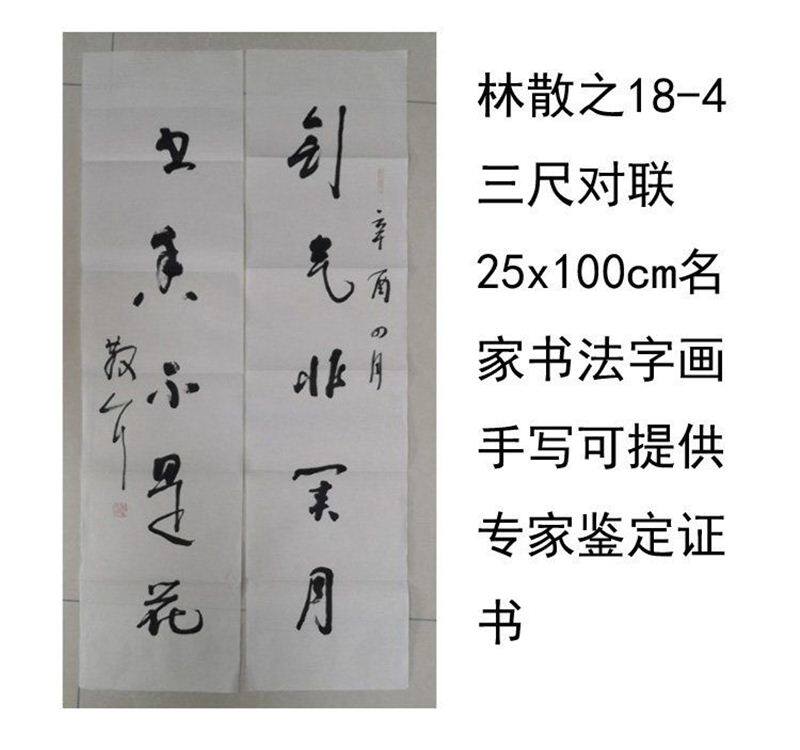 剑气非关月
辛酉四月
书香不是花
散耳
林散之18-4
三尺对联
25x100cm名
家书法字画
手写可提供
专家鉴定证
书